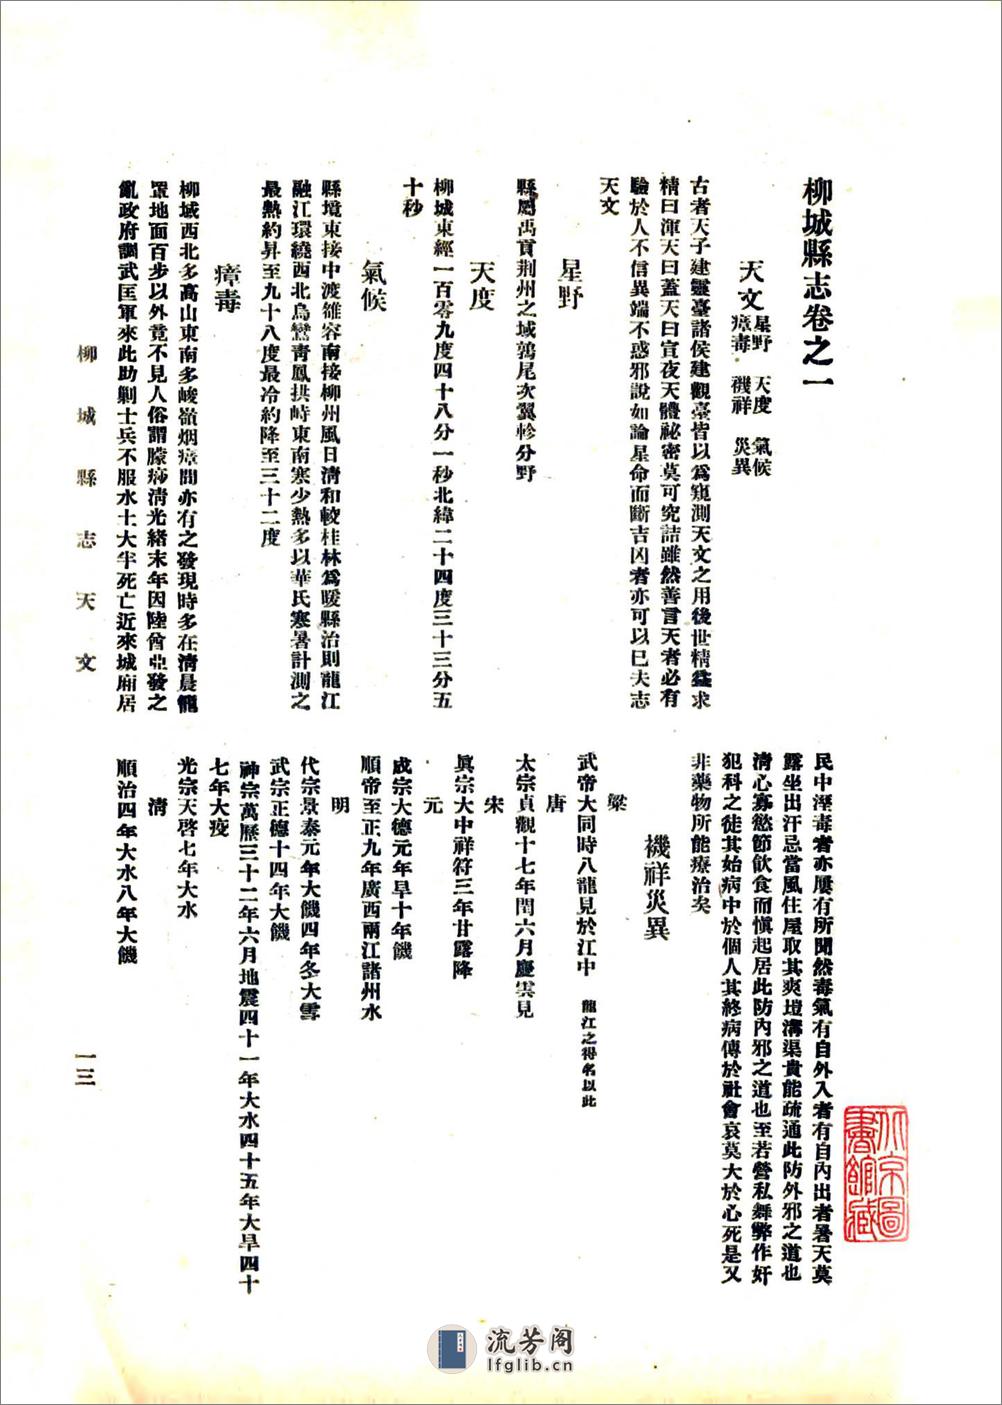 柳城縣志卷之一
天文 星野 天度 氣候
瘴毒 禨祥 災異
古者天子建靈臺諸侯建觀臺皆以爲窺測天文之用後世精益求
精曰渾天曰蓋天曰宣夜天體祕密莫可究詰雖然善言天者必有
驗於人不信異端不惑邪說如論星命而斷吉凶者亦可以已夫志
天文
星野
縣屬禹貢荆州之域鶉尾次翼軫分野
天度
柳城東經一百零九度四十八分一秒北緯二十四度三十三分五
十秒
氣候
縣境東接中渡雒容南接柳州風日淸和較桂林爲暖縣治則龍江
融江環繞西北烏鸞靑鳳拱峙東南寒少熱多以華氏寒暑計測之
最熱約昇至九十八度最冷約降至三十二度
瘴毒
柳城西北多高山東南多峻嶺烟瘴間亦有之發現時多在淸晨籠
罩地面百步以外竟不見人俗謂朦痧淸光緒末年因陸曾亞發之
亂政府調武匡軍來此助剿士兵不服水土大半死亡近來城廂居
民中溼毒者亦屢有所聞然毒氣有自外入者有自內出者暑天莫
露坐出汗忌當風住屋取其爽塏溝渠貴能疏通此防外邪之道也
淸心寡慾節飲食而愼起居此防內邪之道也至若營私舞弊作奸
犯科之徒其始病中於個人其終病傳於社會哀莫大於心死是又
非藥物所能療治矣
禨祥災異
梁
武帝大同時八龍見於江中 龍江之得名以此
唐
太宗貞觀十七年閏六月慶雲見
宋
眞宗大中祥符三年甘露降
元
成宗大德元年旱十年饑
順帝至正九年廣西兩江諸州水
明
代宗景泰元年大饑四年冬大雪
武宗正德十四年大饑
神宗萬曆三十二年六月地震四十一年大水四十五年大旱四十
七年大疫
光宗天啓七年大水
淸
順治四年大水八年大饑
柳城縣志天文
一三
北京圖
書館藏
流芳阁
lfglib.cn